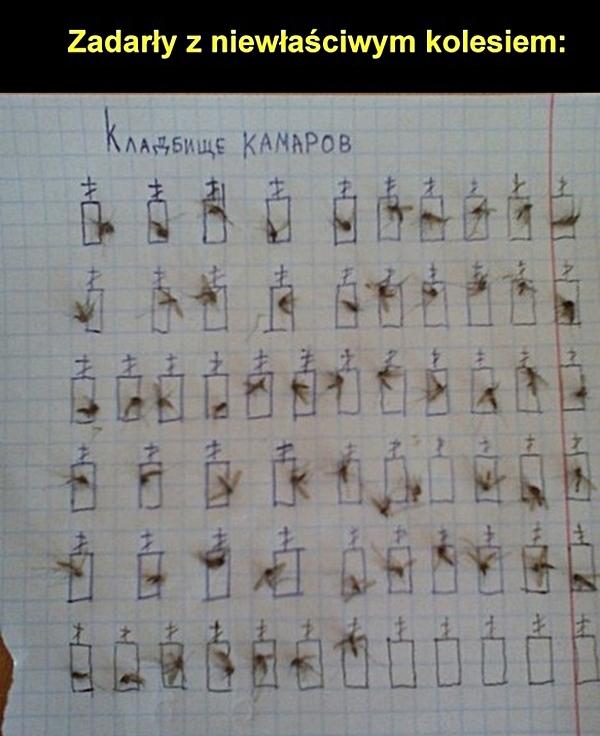 Zadarły z niewłaściwym kolesiem:
Кладбище КАМАРОВ